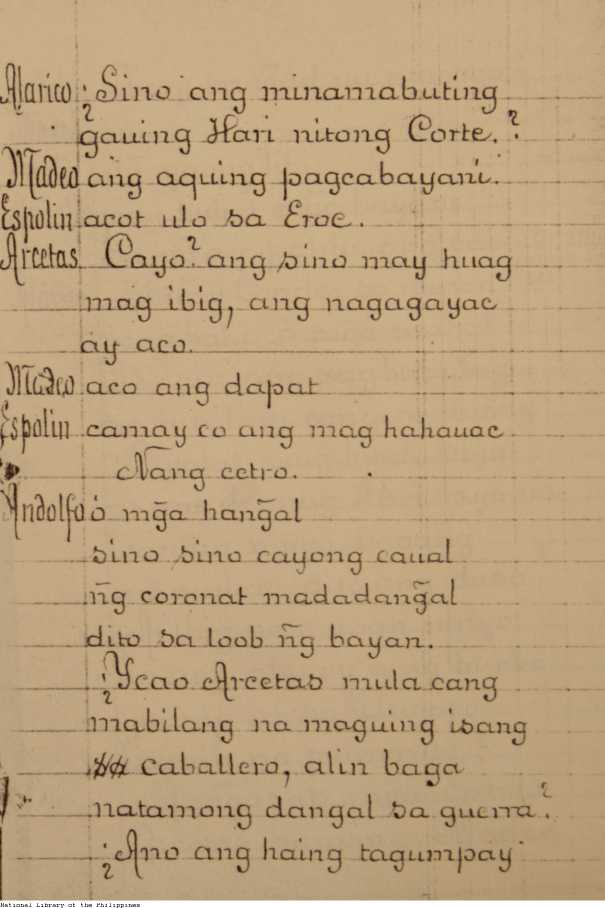 Alarico ¿Sino ang minamabuting
gauing Hari nitong Corte.?
Madeo ang aquing pagcabayani.
Espolin acot ulo sa Eroe.
Arcetas Cayo? ang sino may huag
mag ibig, ang nagagayac
ay aco.
Madeo aco ang dapat
Espolin camay co ang mag hahauac
Nang cetro.
Andolfo ó mg̃a hang̃al
sino sino cayong caual
ñg coronat madadang̃al
dito sa loob ñg bayan.
¿Ycao Arcetas mula cang
mabilang na maguing isang
caballero, alin baga
natamong dangal sa guerra?
¿Ano ang haing tagumpay
National Library of the Philippines